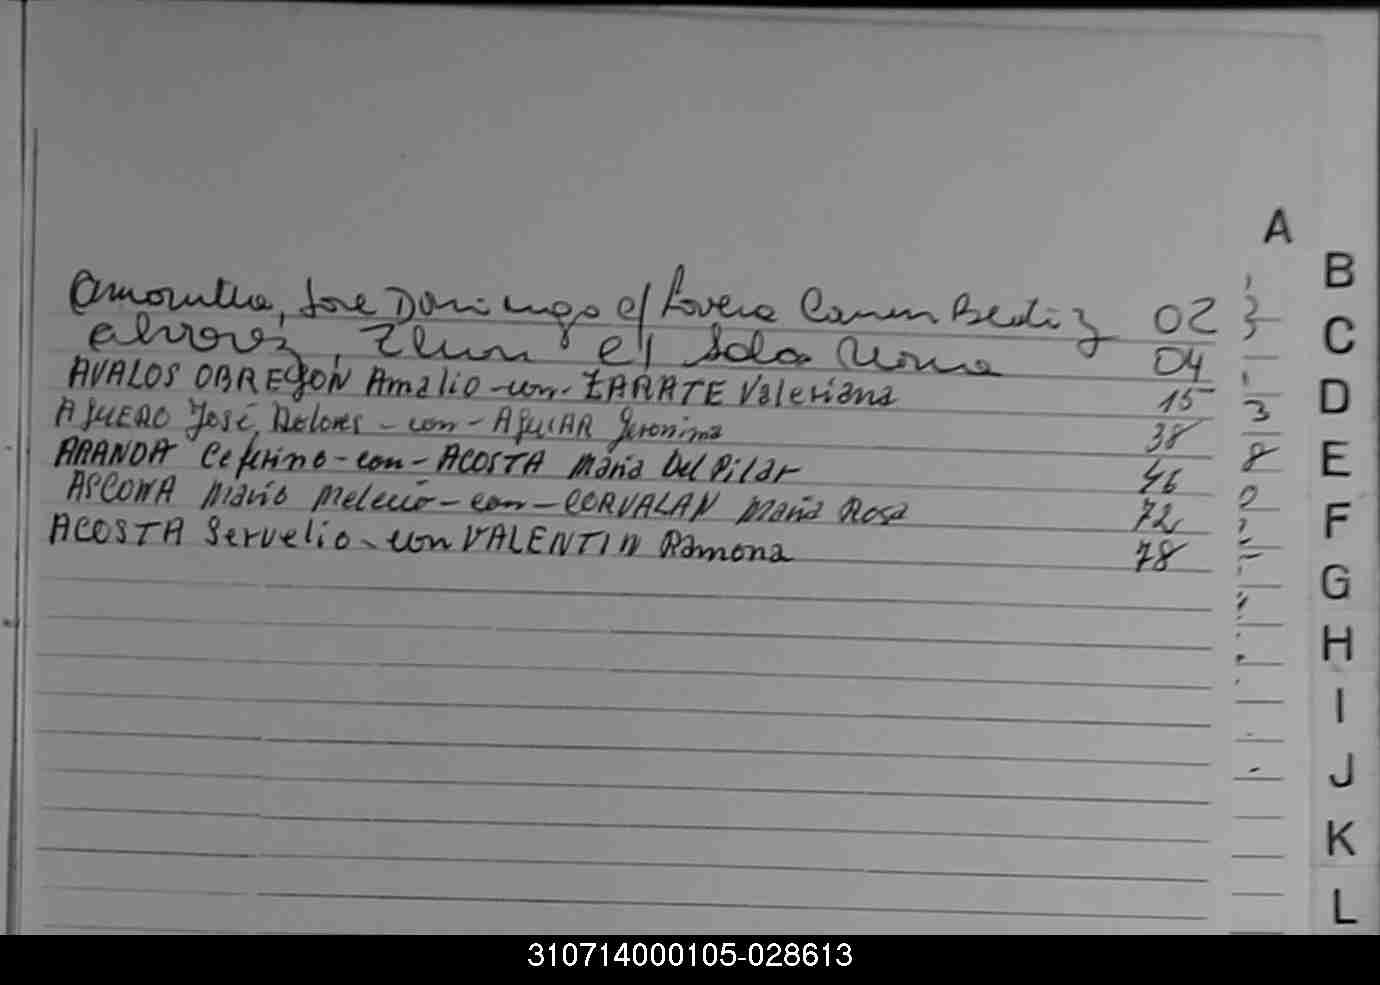 Jose Domingo c/ Lovera Carmen Beatriz 02
c/ Sosa 04
AVALOS OBREGON Amalio -con- ZARATE Valeriana 15
AGUERO José Dolores - con - AGUIAR Jeronima 38
ARANDA Ceferino - con - ACOSTA Maria Del Pilar 46
ASCONA Mario Melecio - con - CORVALAN Maria Rosa 72
ACOSTA Servelio - con VALENTIN Ramona 78
A
B
C
D
E
F
G
H
I
J
K
L
310714000105-028613